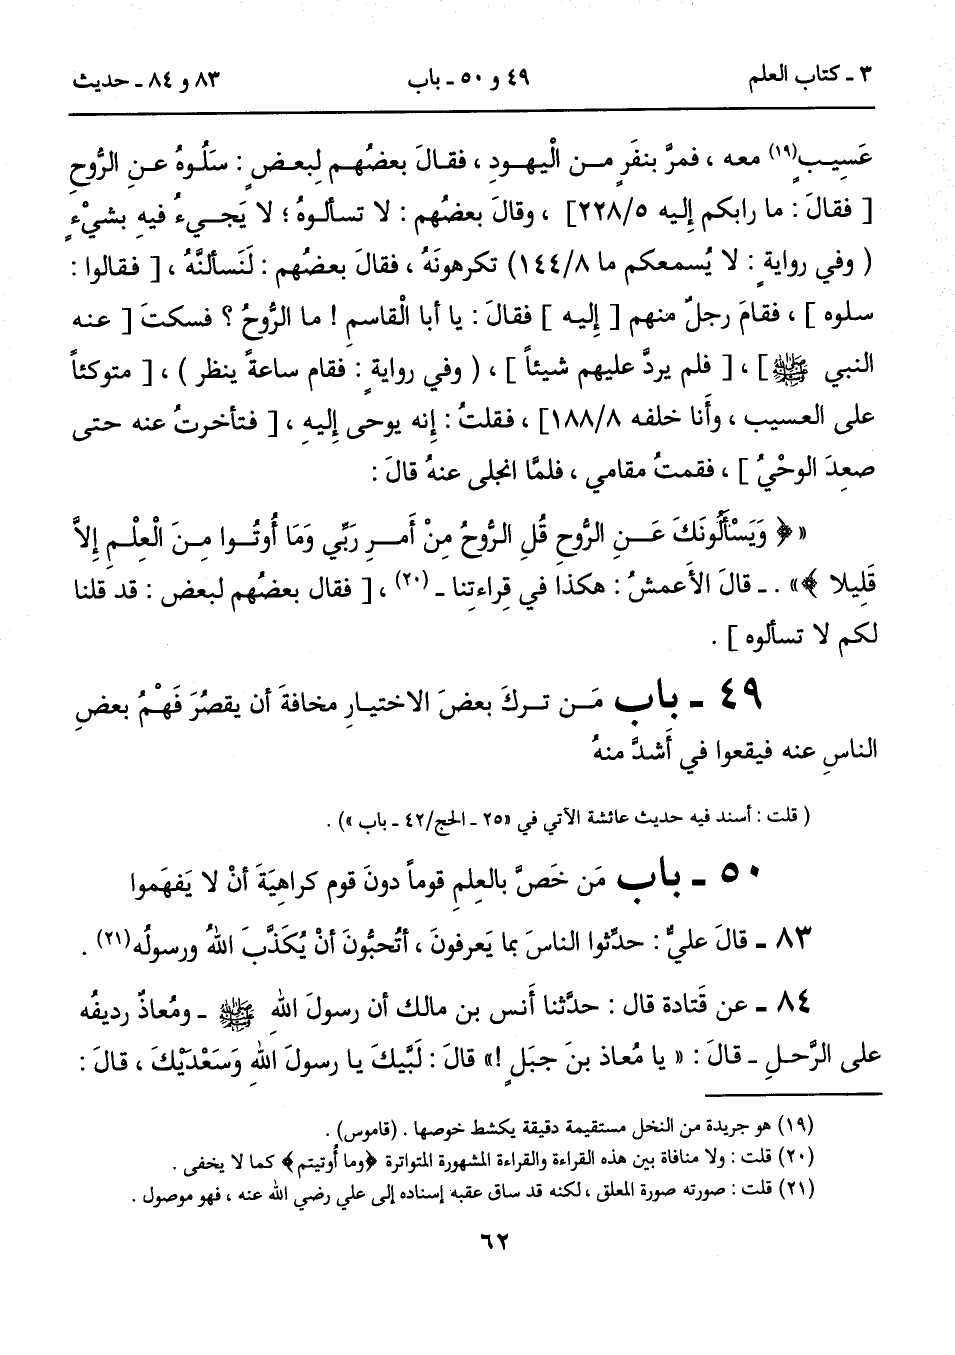 ٣ ـ كتاب العلم ٤٩ و ٥٠ ـ باب ٨٣ و ٨٤ ـ حديث
عَسِيبٍ(١٩) معه ، فمرَّ بنفَرٍ مـن الْيهودِ ، فقـالَ بعضُهـم لِبعـضٍ : سَلُوهُ عـنِ الرُّوحِ
[ فقالَ : ما رابكم إليه ٥/٢٢٨] ، وقالَ بعضُهم : لا تسألوهُ ؛ لا يَجـيءُ فيهِ بشيْءٍ
( وفي روايةٍ : لا يُسمعكم ما ٨/١٤٤) تكرهونَهُ ، فقالَ بعضُهم : لَنَسألنَّهُ ، [ فقالوا :
سلوه ] ، فقامَ رجلٌ منهم [ إليه ] فقالَ : يا أبا الْقاسمِ ! ما الرُّوحُ ؟ فسكتَ [ عنه
النبي ﷺ] ، [ فلم يردَّ عليهم شيئاً ] ، ( وفي روايةٍ : فقام ساعةً ينظر ) ، [ متوكئاً
على العسيب ، وأَنا خلفه ٨/١٨٨] ، فقلتُ : إِنه يوحى إِليهِ ، [ فتأخرتُ عنه حتى
صعِدَ الوحْيُ ] ، فقمتُ مقامي ، فلمَّا انجلى عنهُ قالَ :
«﴿ وَيَسْأَلُونَكَ عَـنِ الرُّوحِ قُلِ الرُّوحُ مِنْ أَمـرِ رَبِّي وَمَا أُوتُـوا مِـنَ الْعِلْـمِ إِلاَّ
قَلِيلا ﴾» . ـ قالَ الأَعمشُ : هكذا في قِراءتِنا ـ (٢٠) ، [ فقال بعضُهم لبعض : قد قلنا
لكم لا تسألوه ] .
٤٩ ـ باب مَـن تـركَ بعضَ الاختيـارِ مخافةَ أن يقصُرَ فَهْمُ بعضِ
الناسِ عنه فيقعوا في أَشدَّ منهُ
( قلت : أسند فيه حديث عائشة الآتي في «٢٥ ـ الحج/٤٢ ـ باب ») .
٥٠ ـ باب مَن خَصَّ بالعلِمِ قوماً دونَ قوم كراهيَةَ أنْ لا يَفهَموا
٨٣ ـ قالَ عليٌّ : حدِّثوا الناسَ بما يَعرفونَ ، أتُحبُّونَ أنْ يُكَذَّبَ اللهُ ورسولُه(٢١) .
٨٤ ـ عن قَتادة قال : حدَّثنا أَنس بن مالك أن رسولَ اللهِ ﷺ ـ ومُعاذٌ رديفُه
على الرَّحلِ ـ قالَ : « يا مُعاذ بنَ جبَلٍ !» قالَ : لَبَّيكَ يا رسولَ اللهِ وَسَعْدَيْكَ ، قالَ :
(١٩) هو جريدة من النخل مستقيمة دقيقة يكشط خوصها . (قاموس) .
(٢٠) قلت : ولا منافاة بين هذه القراءة والقراءة المشهورة المتواترة ﴿وما أُوتيتم﴾ كما لا يخفى .
(٢١) قلت : صورته صورة المعلق ، لكنه قد ساق عقبه إسناده إلى علي رضي الله عنه ، فهو موصول .
٦٢